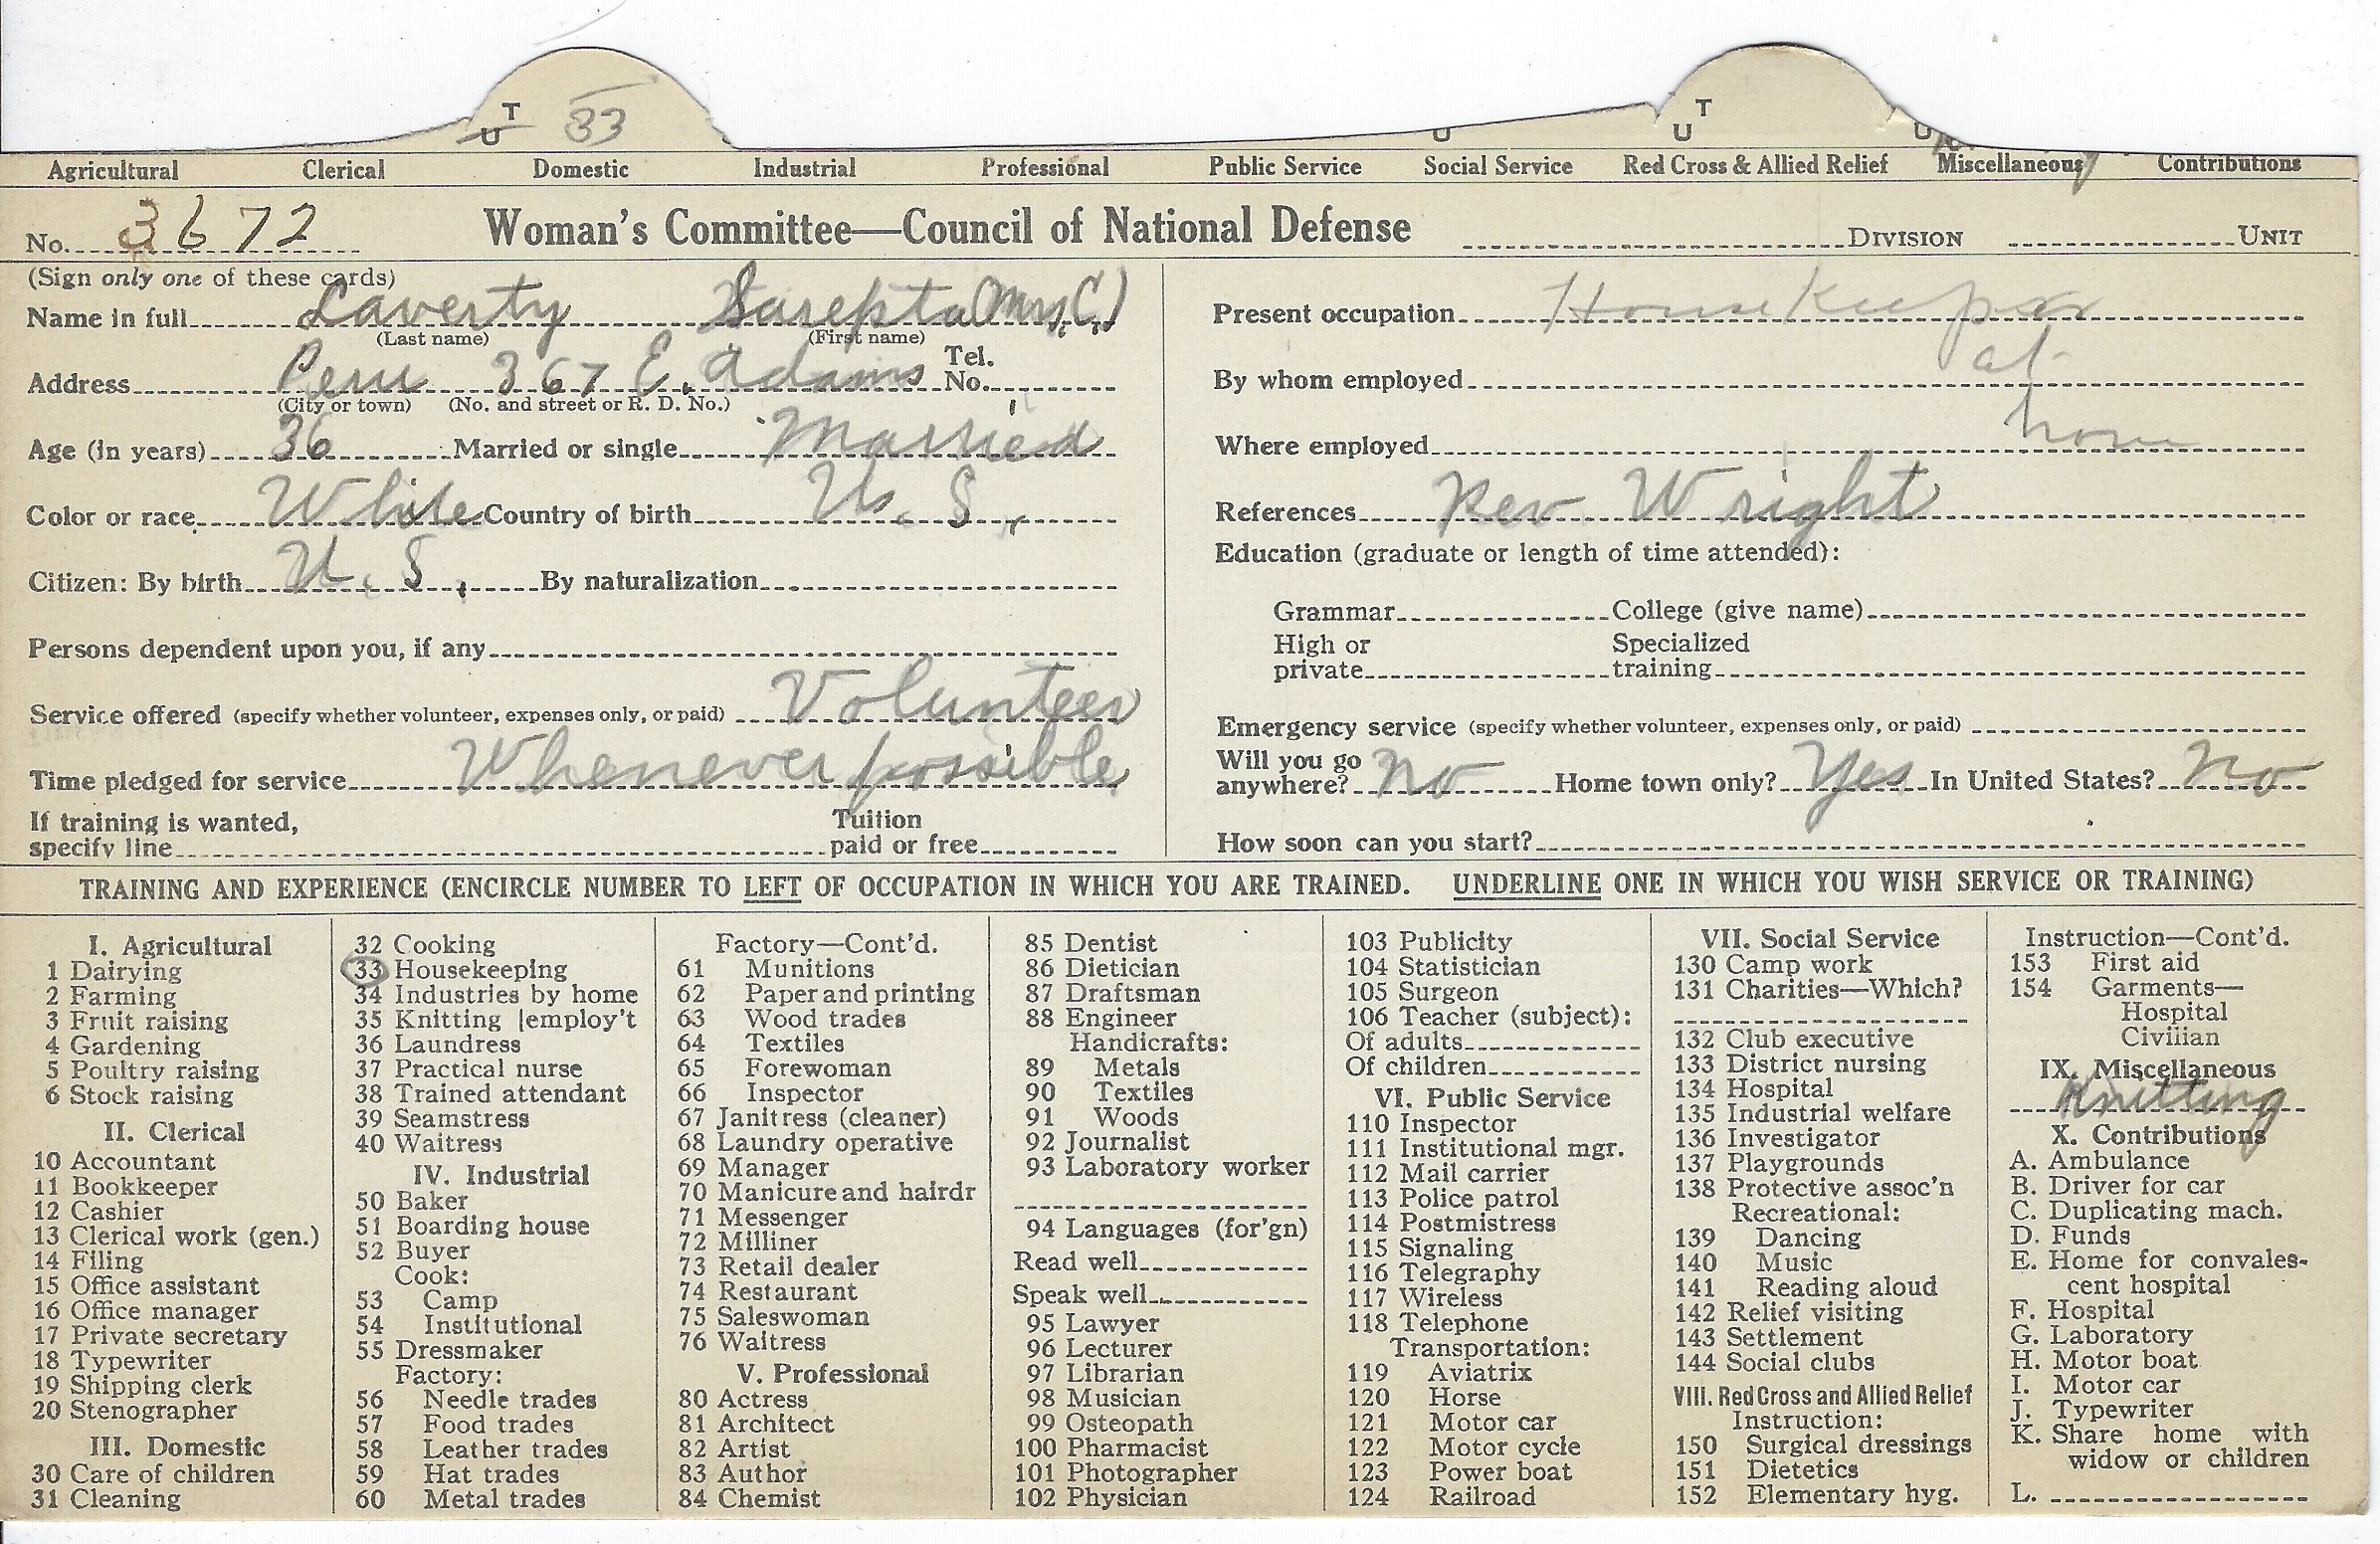 T
U 33 U T U U
Agricultural Clerical Domestic Industrial Professional Public Service Social Service Red Cross & Allied Relief Miscellaneous Contributions
No. 3672 Woman's Committee—Council of National Defense DIVISION UNIT
(Sign only one of these cards)
Name in full Laverty Sarepta (Mrs. C.)
(Last name) (First name)
Address Peru 367 E. Adams Tel. No.
(City or town) (No. and street or R. D. No.)
Age (in years) 36 Married or single Married
Color or race White Country of birth U. S.
Citizen: By birth U. S. By naturalization
Persons dependent upon you, if any
Service offered (specify whether volunteer, expenses only, or paid) Volunteer
Time pledged for service Whenever possible
If training is wanted, specify line Tuition paid or free
Present occupation Housekeeper
By whom employed at
Where employed home
References Rev Wright
Education (graduate or length of time attended):
Grammar College (give name)
High or private Specialized training
Emergency service (specify whether volunteer, expenses only, or paid)
Will you go anywhere? no Home town only? Yes In United States? no
How soon can you start?
TRAINING AND EXPERIENCE (ENCIRCLE NUMBER TO LEFT OF OCCUPATION IN WHICH YOU ARE TRAINED. UNDERLINE ONE IN WHICH YOU WISH SERVICE OR TRAINING)
I. Agricultural
1 Dairying
2 Farming
3 Fruit raising
4 Gardening
5 Poultry raising
6 Stock raising
II. Clerical
10 Accountant
11 Bookkeeper
12 Cashier
13 Clerical work (gen.)
14 Filing
15 Office assistant
16 Office manager
17 Private secretary
18 Typewriter
19 Shipping clerk
20 Stenographer
III. Domestic
30 Care of children
31 Cleaning
32 Cooking
33 Housekeeping
34 Industries by home
35 Knitting [employ't
36 Laundress
37 Practical nurse
38 Trained attendant
39 Seamstress
40 Waitress
IV. Industrial
50 Baker
51 Boarding house
52 Buyer
Cook:
53 Camp
54 Institutional
55 Dressmaker
Factory:
56 Needle trades
57 Food trades
58 Leather trades
59 Hat trades
60 Metal trades
Factory—Cont'd.
61 Munitions
62 Paper and printing
63 Wood trades
64 Textiles
65 Forewoman
66 Inspector
67 Janitress (cleaner)
68 Laundry operative
69 Manager
70 Manicure and hairdr
71 Messenger
72 Milliner
73 Retail dealer
74 Restaurant
75 Saleswoman
76 Waitress
V. Professional
80 Actress
81 Architect
82 Artist
83 Author
84 Chemist
85 Dentist
86 Dietician
87 Draftsman
88 Engineer
Handicrafts:
89 Metals
90 Textiles
91 Woods
92 Journalist
93 Laboratory worker
94 Languages (for'gn)
Read well
Speak well
95 Lawyer
96 Lecturer
97 Librarian
98 Musician
99 Osteopath
100 Pharmacist
101 Photographer
102 Physician
103 Publicity
104 Statistician
105 Surgeon
106 Teacher (subject):
Of adults
Of children
VI. Public Service
110 Inspector
111 Institutional mgr.
112 Mail carrier
113 Police patrol
114 Postmistress
115 Signaling
116 Telegraphy
117 Wireless
118 Telephone
Transportation:
119 Aviatrix
120 Horse
121 Motor car
122 Motor cycle
123 Power boat
124 Railroad
VII. Social Service
130 Camp work
131 Charities—Which?
132 Club executive
133 District nursing
134 Hospital
135 Industrial welfare
136 Investigator
137 Playgrounds
138 Protective assoc'n
Recreational:
139 Dancing
140 Music
141 Reading aloud
142 Relief visiting
143 Settlement
144 Social clubs
VIII. Red Cross and Allied Relief
Instruction:
150 Surgical dressings
151 Dietetics
152 Elementary hyg.
Instruction—Cont'd.
153 First aid
154 Garments—
Hospital
Civilian
IX. Miscellaneous
Knitting
X. Contributions
A. Ambulance
B. Driver for car
C. Duplicating mach.
D. Funds
E. Home for convales-
cent hospital
F. Hospital
G. Laboratory
H. Motor boat
I. Motor car
J. Typewriter
K. Share home with
widow or children
L.